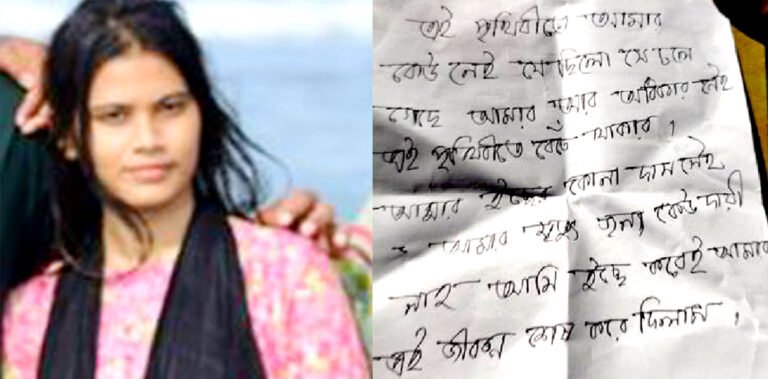 এই পৃথিবীতে আমার
কেউ নেই যে ছিলো সে চলে
গেছে আমার আর অধিকার নেই
এই পৃথিবীতে বেঁচে থাকার।
আমার কোনো দাম নেই
আমার মৃত্যুর জন্য কেউ দায়ী
নাই আমি ইচ্ছে করেই আমার
এই জীবন শেষ করে দিলাম।